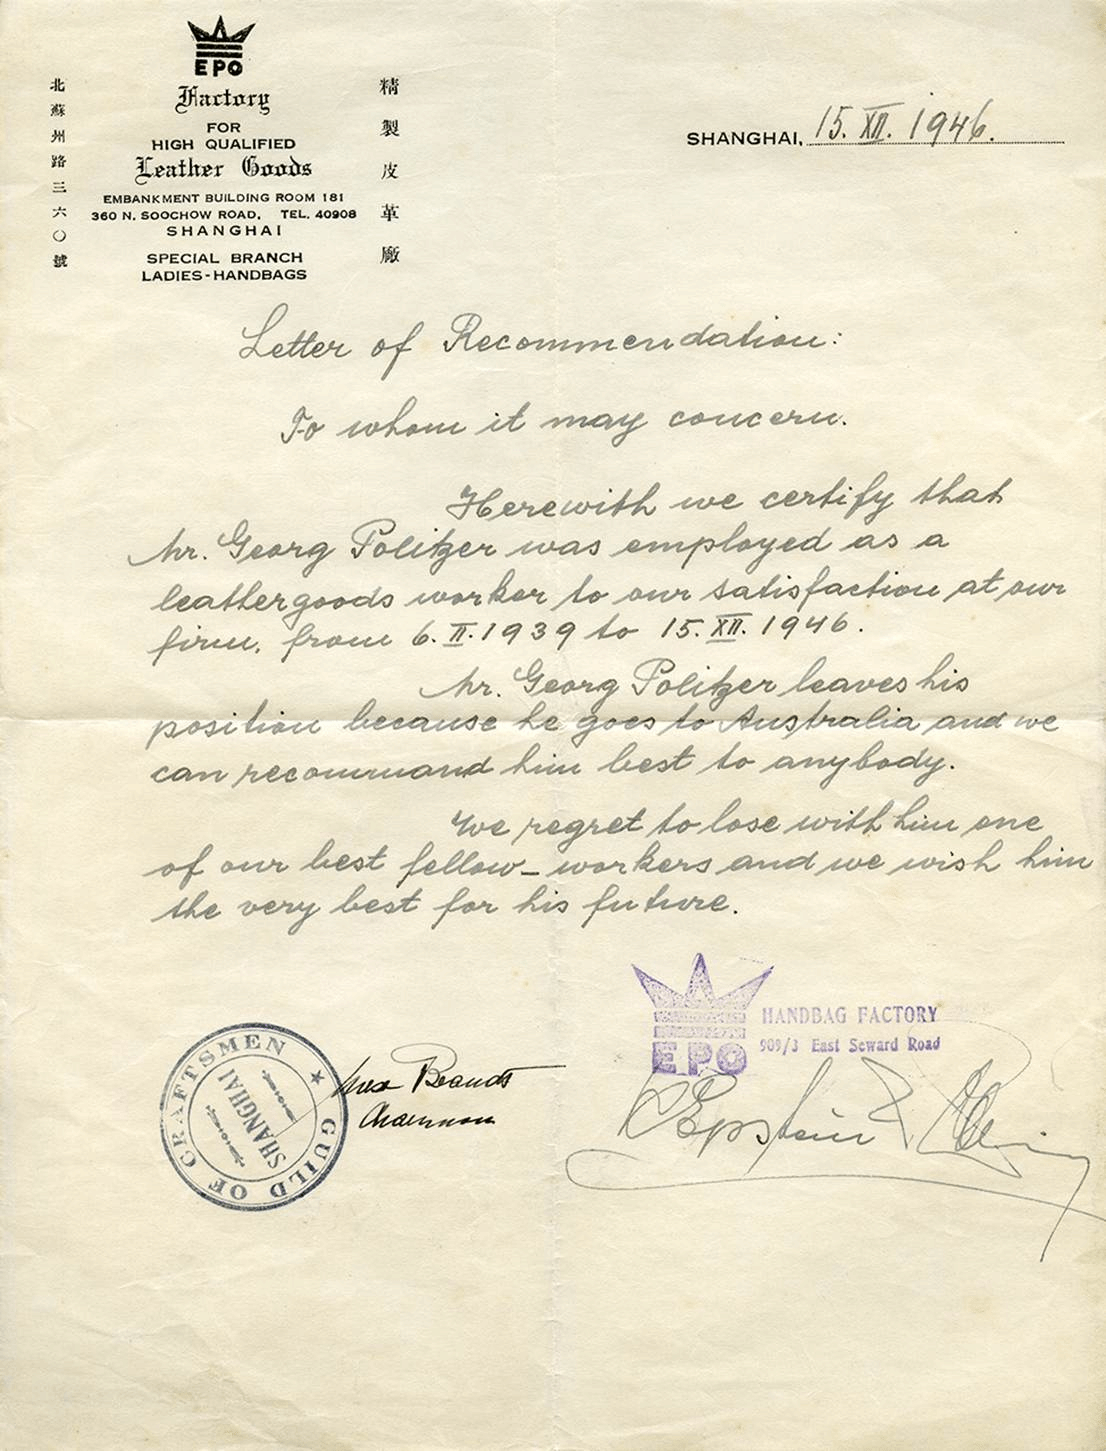 EPO
Factory
FOR
HIGH QUALIFIED
Leather Goods
EMBANKMENT BUILDING ROOM 181
360 N. SOOCHOW ROAD, TEL. 40908
SHANGHAI
SPECIAL BRANCH
LADIES-HANDBAGS
北蘇州路三六〇號
精製皮革廠
SHANGHAI, 15. XII. 1946.
Letter of Recommendation:
To whom it may concern.
Herewith we certify that
Mr. Georg Politzer was employed as a
leathergoods worker to our satisfaction at our
firm, from 6. II. 1939 to 15. XII. 1946.
Mr. Georg Politzer leaves his
position because he goes to Australia and we
can recommand him best to anybody.
We regret to lose with him one
of our best fellow-workers and we wish him
the very best for his future.
EPO
HANDBAG FACTORY
909/3 East Seward Road
GUILD OF CRAFTSMEN
SHANGHAI
Max Brandt
Chairman
Epstein